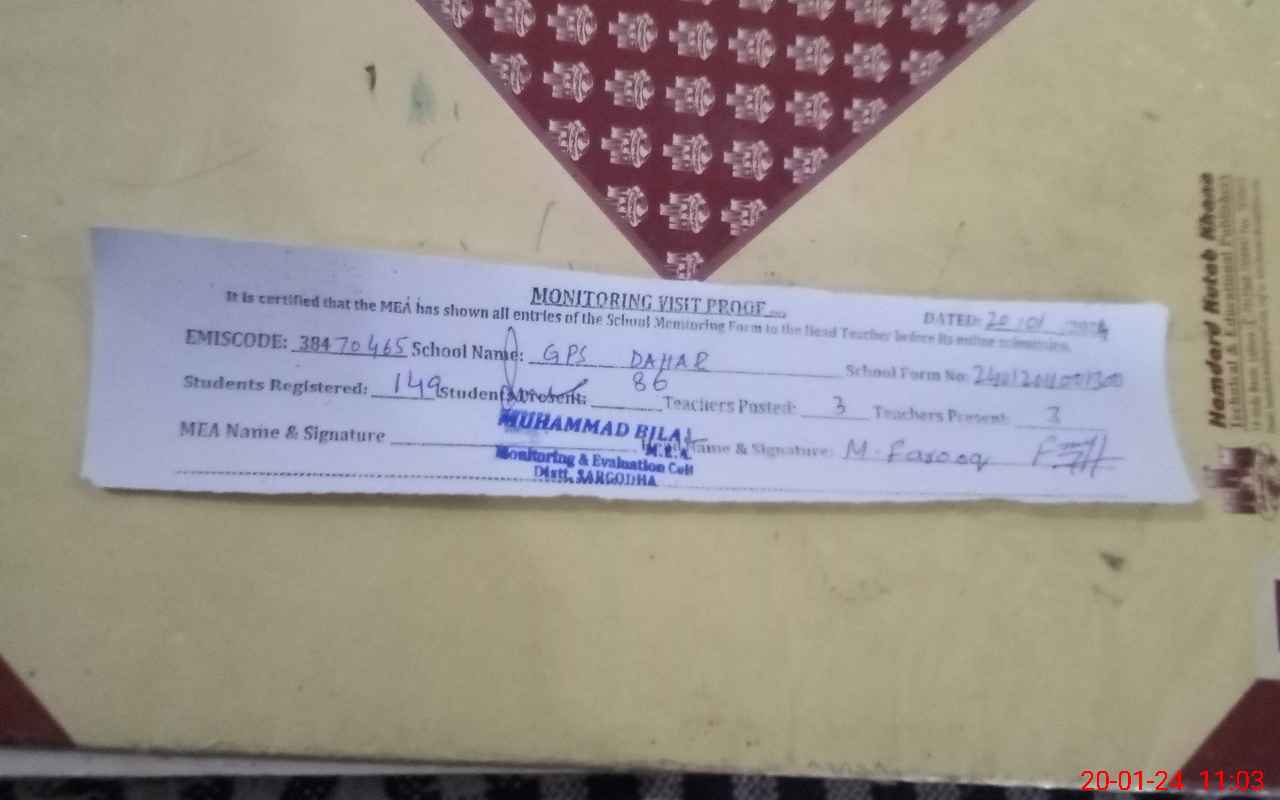 MONITORING VISIT PROOF
DATED: 20 01 2024
It is certified that the MEA has shown all entries of the School Monitoring Form to the Head Teacher before its online submission.
EMISCODE: 38470465 School Name: GPS DAHAR School Form No:
Students Registered: 149 Students Present: 86 Teachers Posted: 3 Teachers Present: 3
MEA Name & Signature Name & Signature: M. Farooq
MUHAMMAD BILAL
M.E.A
Monitoring & Evaluation Cell
Distt. SARGODHA
Hamdard Kutab Khana
Technical & Educational Publishers
20-01-24 11:03